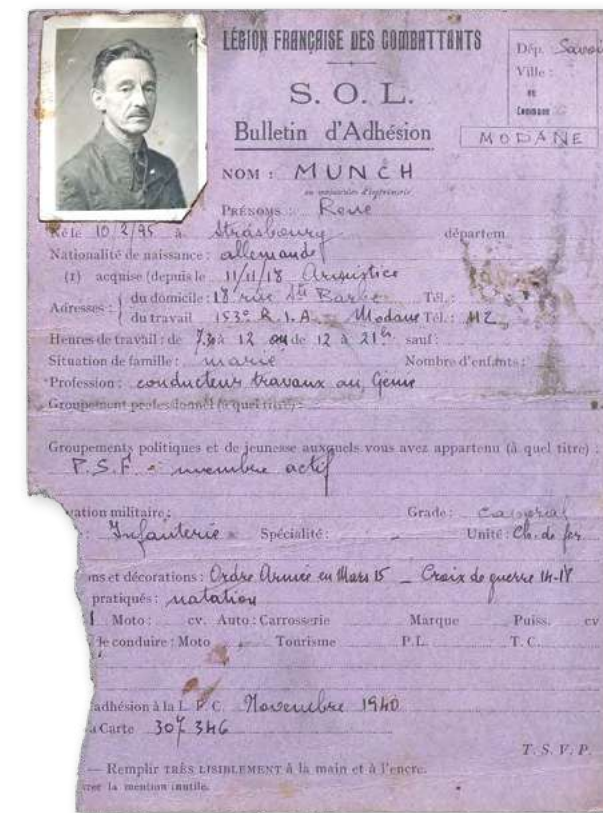 LÉGION FRANÇAISE DES COMBATTANTS
Dép. Savoie
Ville :
ou
Commune
MODANE
S. O. L.
Bulletin d'Adhésion
NOM : MUNCH
en majuscules d'imprimerie
PRÉNOMS : René
Né le 10/2/95 à Strasbourg départem
Nationalité de naissance : allemande
(1) acquise (depuis le 11/11/18 Armistice
Adresses : du domicile : 18 rue Ste Barbe Tél. :
du travail 153e R. I. A. Modane Tél. : MZ
Heures de travail : de 7.30 à 12 ou de 12 à 21h sauf :
Situation de famille : marié Nombre d'enfants :
Profession : conducteur travaux au Génie
Groupement professionnel (à quel titre) :
Groupements politiques et de jeunesse auxquels vous avez appartenu (à quel titre) :
P.S.F. - membre actif
ation militaire : Grade : Caporal
: Infanterie Spécialité : Unité : Ch. de fer
ns et décorations : Ordre Armée en Mars 15 _ Croix de guerre 14-18
pratiqués : natation
Moto : cv. Auto : Carrosserie Marque Puiss. cv
de conduire : Moto Tourisme P.L. T. C.
adhésion à la L. F. C. Novembre 1940
Carte 307 346
T. S. V. P.
— Remplir TRÈS LISIBLEMENT à la main et à l'encre.
la mention inutile.